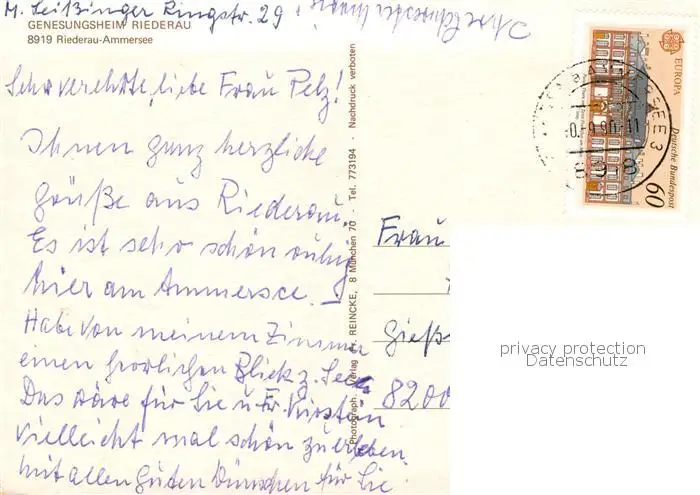 M. Leißinger Ringstr. 29
GENESUNGSHEIM RIEDERAU
8919 Riederau-Ammersee
Sehr verehrte, liebe Frau Pelz!
Ihnen ganz herzliche
Grüße aus Riederau.
Es ist sehr schön ruhig
hier am Ammersee.
Habe von meinem Zimmer
einen herrlichen Blick z. See.
Das wäre für Sie u. Fr. Kirstein
vielleicht mal schön zu erleben.
Mit allen guten Wünschen für Sie
Photograph. Verlag Fr. REINCKE, 8 München 70 - Tel. 773194 - Nachdruck verboten
EUROPA
Deutsche Bundespost
60
8918
Frau
Gieß
8200
privacy protection
Datenschutz